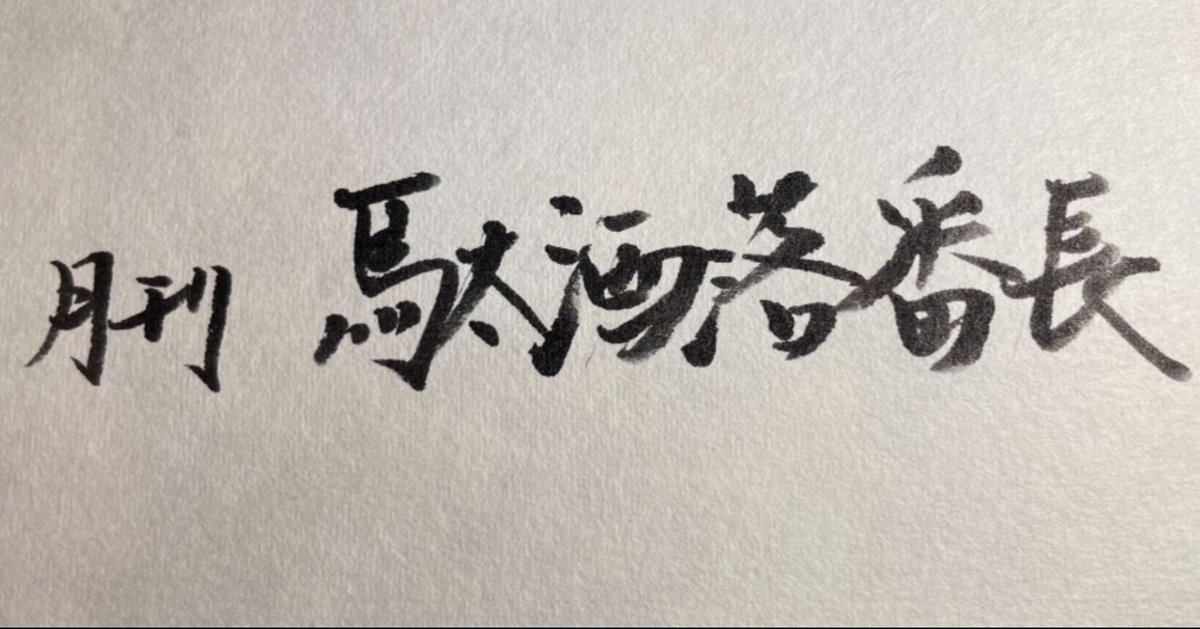 月刊 駄洒落番長